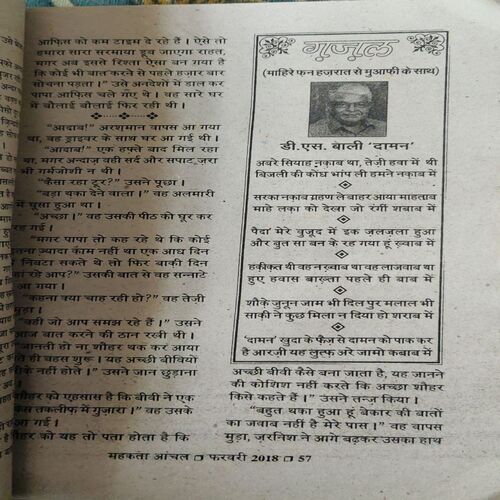 आफिस को कम टाइम दे रहे हैं। ऐसे तो
हमारा सारा सरमाया डूब जाएगा राहत,
मगर अब इससे रिश्ता ऐसा बन गया है
कि कोई भी बात करने से पहले हज़ार बार
सोचना पड़ता।" उसे अनदेशों में डाल कर
पापा आफिस चले गए थे। वह सारे घर
में बौलाई बौलाई फिर रही थी।
"आदाब!" अरग़मान वापस आ गया
था, वह ड्राइवर के साथ घर आ गई थी।
"आदाब!" एक हफ़्ते बाद मिल रहा
था, मगर अन्दाज़ वही सर्द और सपाट, ज़रा
भी गर्मजोशी न थी।
"कैसा रहा टूर?" उसने पूछा।
"बड़ा थका देने वाला।" वह अलमारी
में घुसा हुआ था।
"अच्छा।" वह उसकी पीठ को घूर कर
रह गई।
"मगर पापा तो कह रहे थे कि कोई
इतना ज़्यादा काम नहीं था एक आध दिन
निबटा सकते थे तो फिर बाकी दिन
हां रहे आप?" उसकी बात से वह सन्नाटे
आ गया।
"कहना क्या चाह रही हो?" वह तेज़ी
मुड़ा।
"वही जो आप समझ रहे हैं।" उसने
आज बात करने की ठान रखी थी।
"जानती हो ना शौहर थक कर आया
ते ही बहस शुरू। यह अच्छी बीवीयों
नहीं होती।" उसने जान छुड़ाना
शौहर को एहसास है कि बीवी ने एक
तकलीफ़ में गुज़ारा।" वह उसके
आ गई।
शौहर को यह तो पता होता है कि
ग़ज़ल
(माहिरे फ़न हज़रात से मुआफ़ी के साथ)
डी.एस. बाली 'दामन'
अबरे सियाह नक़ाब था, तेज़ी हवा में थी
बिजली की कौंध भांप ली हमने नक़ाब में
सरका नक़ाब ग्रहण ले बाहर आया माहताब
माहे लक़ा को देखा जो रंगीं शबाब में
पैदा मेरे वुजूद में इक जलजला हुआ
और बुत सा बन के रह गया हूं ख़्वाब में
हक़ीक़त थी वह न ख़्वाब था वह लाजवाब था
हुए हवास बाख़्ता पहले ही बाब में
शौक़े जुनून जाम भी दिल पुर मलाल भी
साक़ी ने कुछ मिला न दिया हो शराब में
'दामन' खुदा के फ़ैज़ से दामन को पाक कर
है आरज़ी यह लुत्फ़ अरे जामो कबाब में
अच्छी बीवी कैसे बना जाता है, यह जानने
की कोशिश नहीं करते कि अच्छा शौहर
किसे कहते हैं।" उसने तन्ज़ किया।
"बहुत थका हुआ हूं बेकार की बातों
का जवाब नहीं है मेरे पास।" वह वापस
मुड़ा, ज़रनिश ने आगे बढ़कर उसका हाथ
महकता आंचल □ फरवरी 2018 □ 57